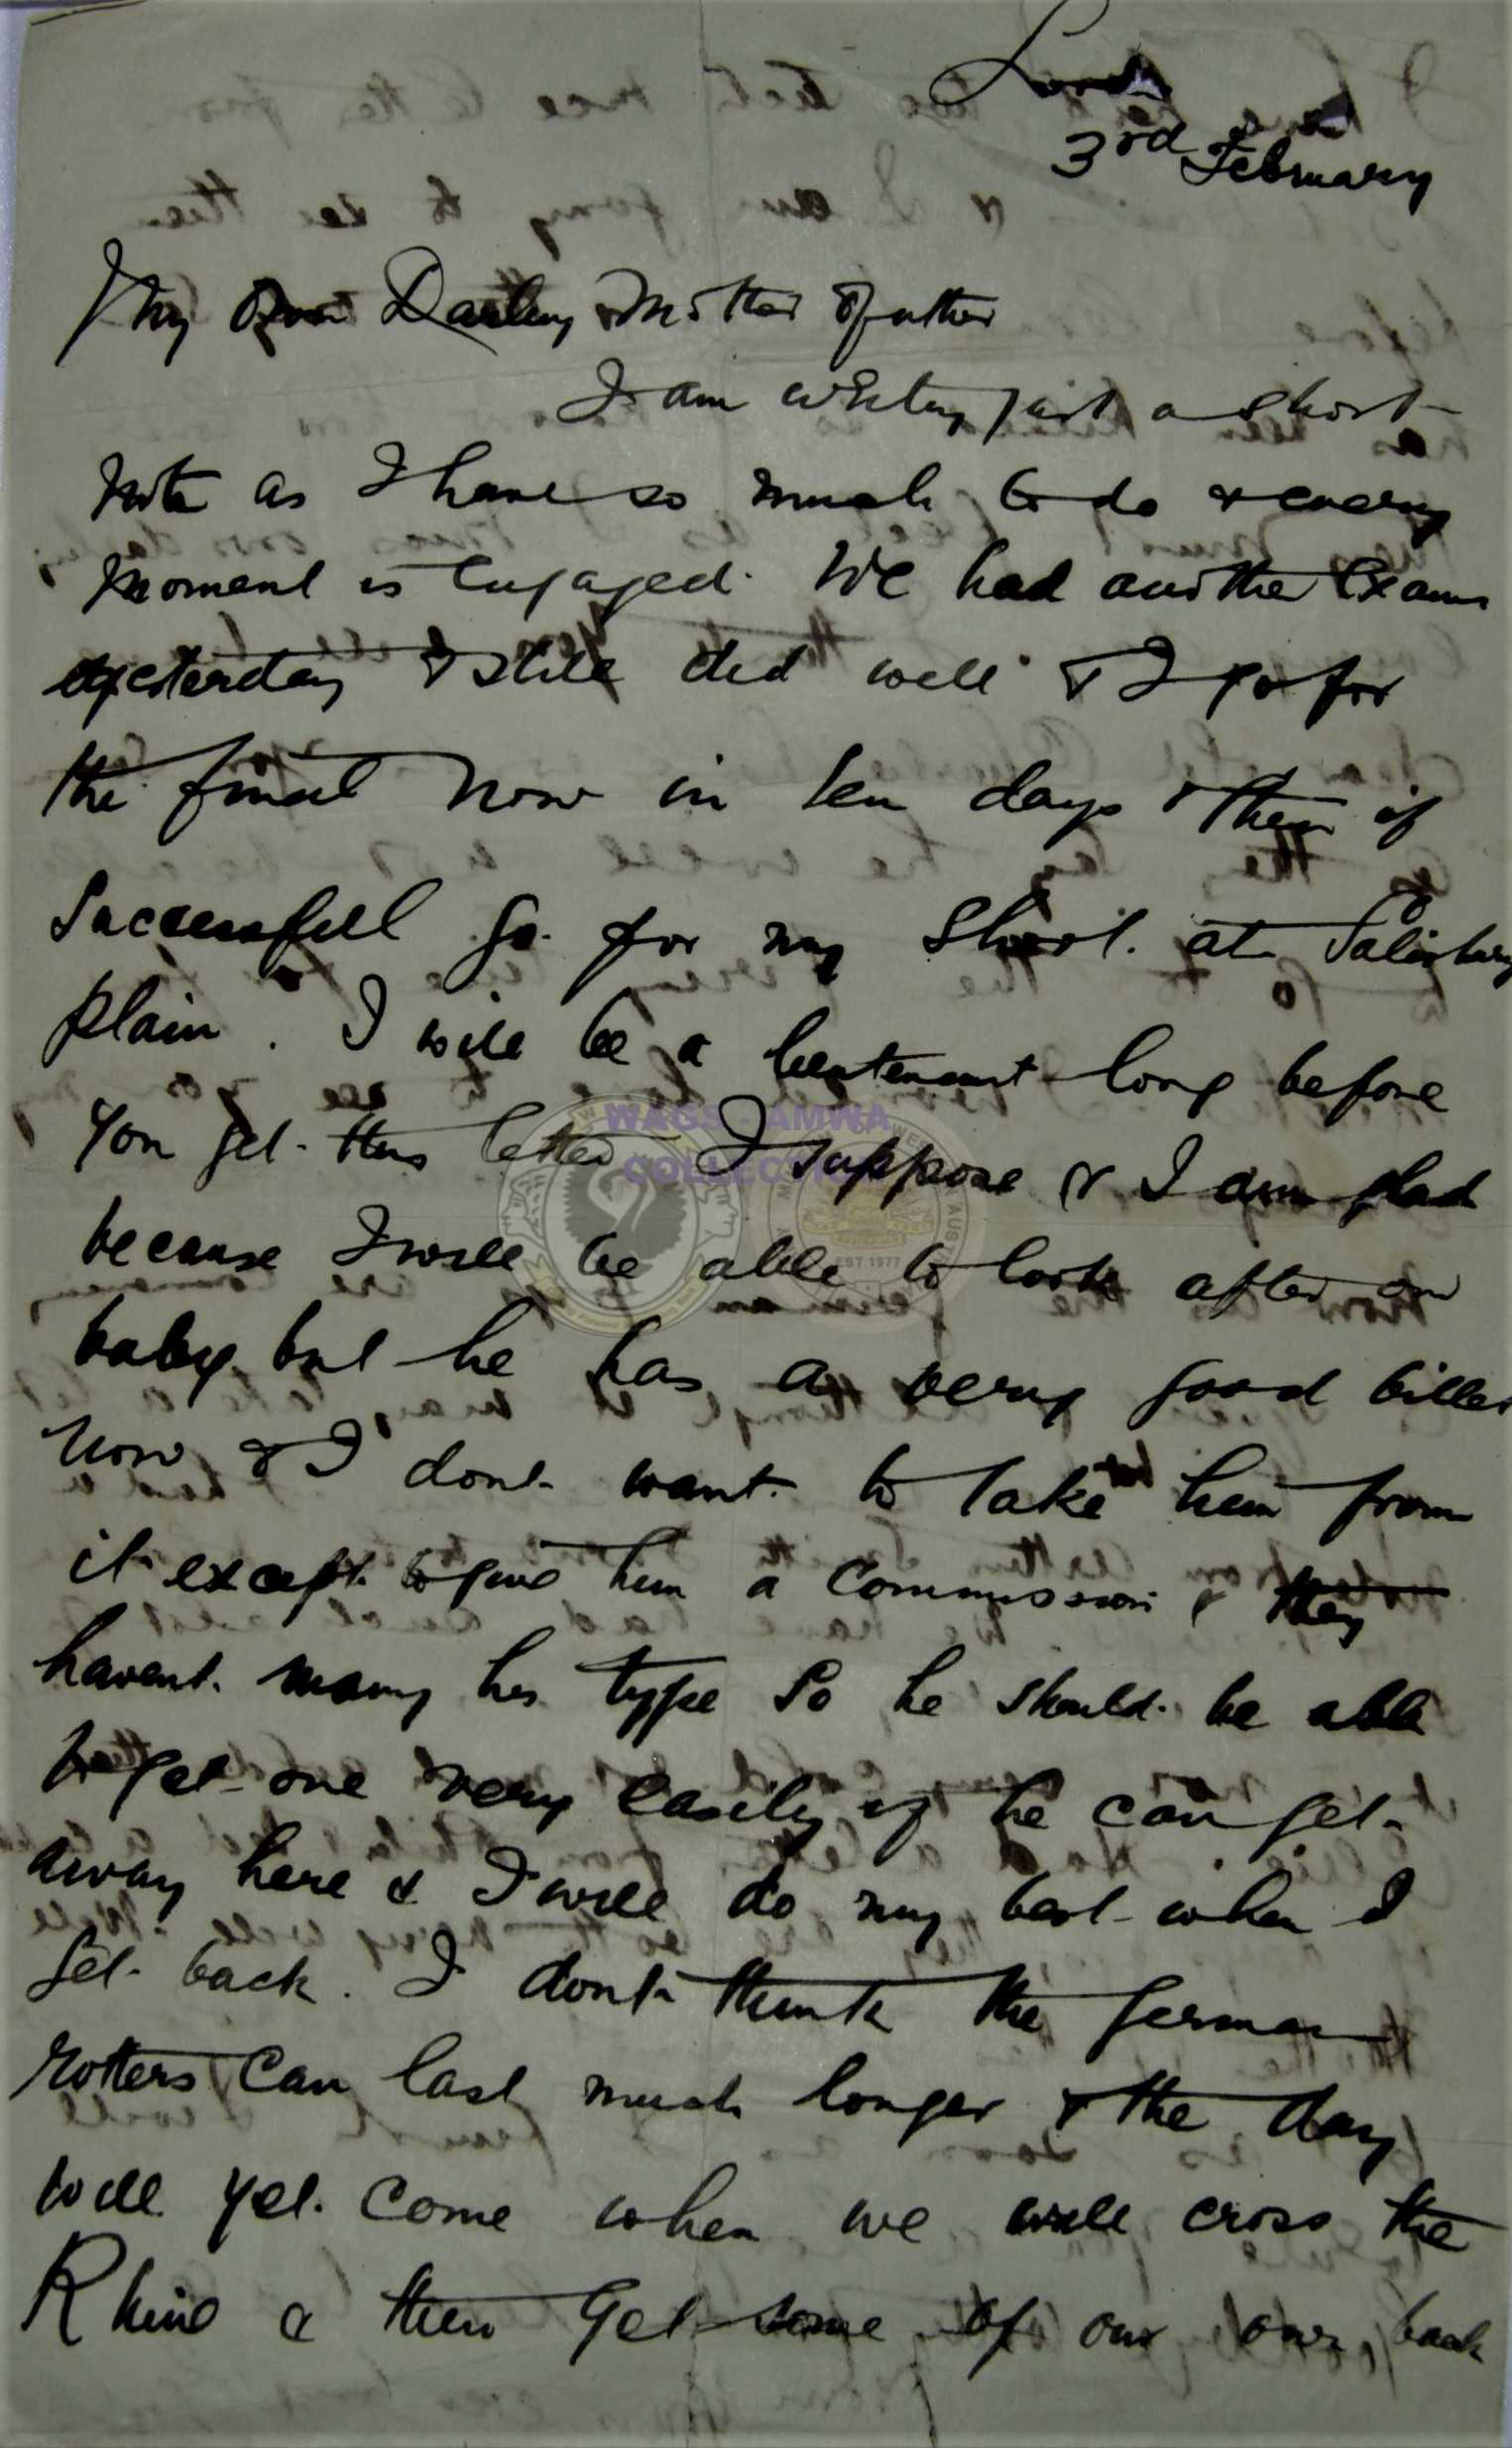 3rd February
My Own Darling Mother & Father
I am writing just a short
note as I have so much to do & every
moment is engaged. We had another Exam
yesterday & still did well & I go for
the final now in ten days & then if
Successfull go for my Short. at Salisbury
Plain. I will be a lieutenant long before
you get this letter I suppose & I am glad
because I will be able to look after our
baby but he has a very good billet
now & I dont want to take him from
it except to give him a Commission & they
havent many his type so he should be able
to get one very easily if he can get
away here & I will do my best when I
get back. I dont think the German
rotters can last much longer & the day
will yet come when we will cross the
Rhine & then get some of our own back
WAGS - AMWA
COLLECTION
EST 1977